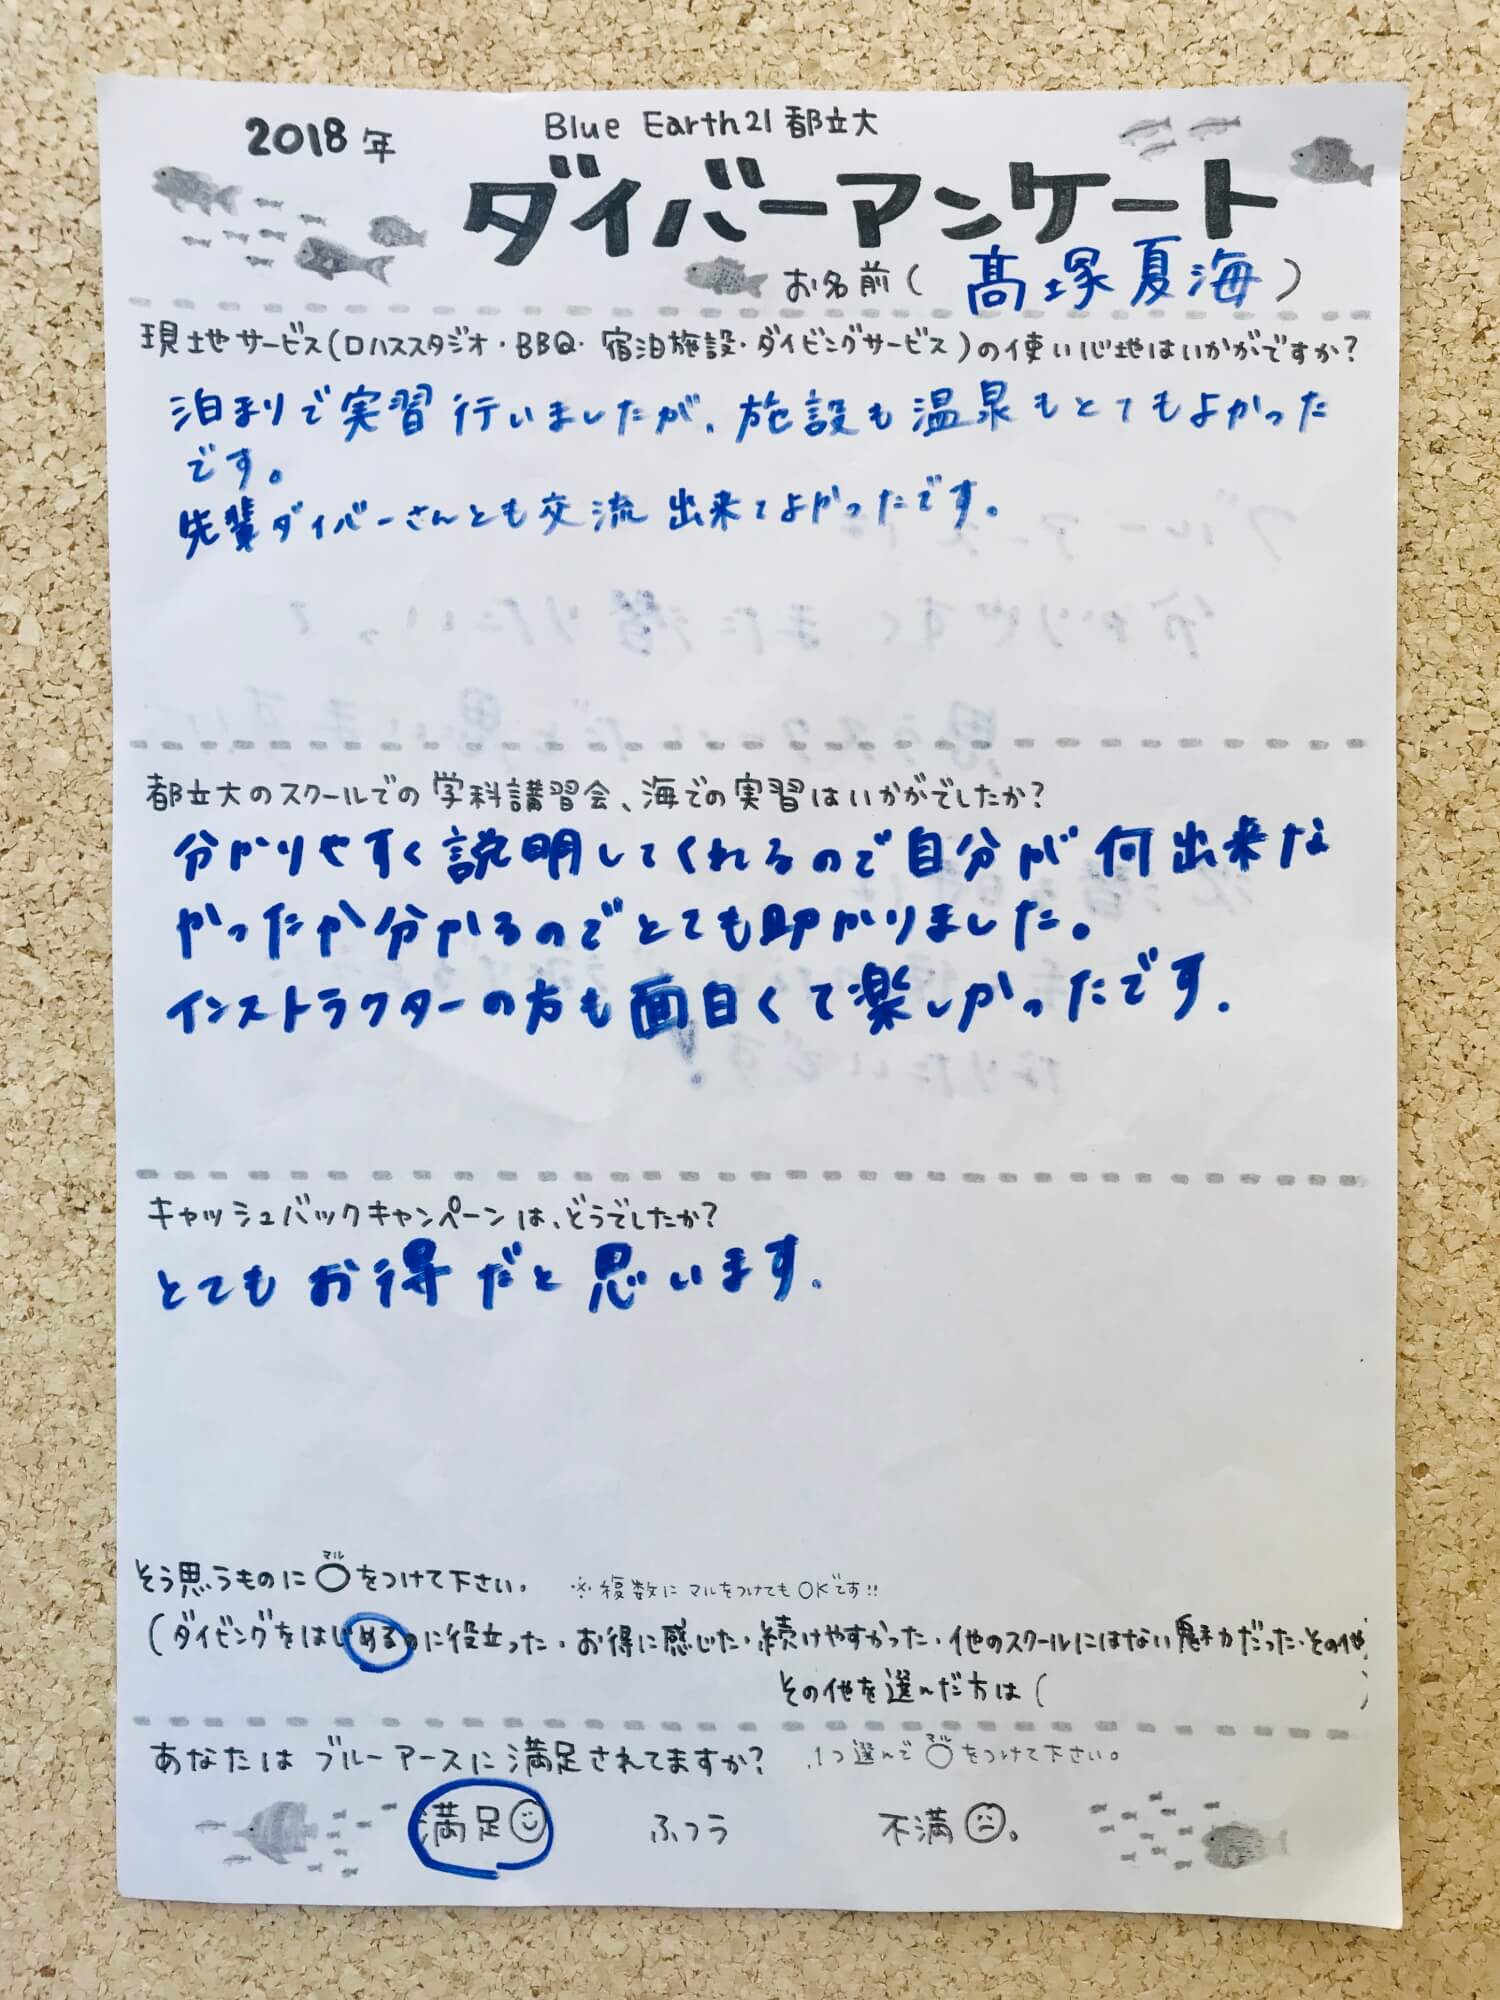 2018年
Blue Earth21都立大
ダイバーアンケート
お名前( 髙塚夏海 )
現地サービス(ロハススタジオ・BBQ・宿泊施設・ダイビングサービス)の使い心地はいかがですか?
泊まりで実習行いましたが、施設も温泉もとてもよかった
です。
先輩ダイバーさんとも交流出来てよかったです。
都立大のスクールでの学科講習会、海での実習はいかがでしたか?
分かりやすく説明してくれるので自分が何出来な
かったか分かるのでとても助かりました。
インストラクターの方も面白くて楽しかったです.
キャッシュバックキャンペーンは、どうでしたか?
とてもお得だと思います.
マル
そう思うものに○をつけて下さい。 ※複数にマルをつけてもOKです!!
(ダイビングをはじめるのに役立った・お得に感じた・続けやすかった・他のスクールにはない魅力だった・その他)
その他を選んだ方は( )
あなたはブルーアースに満足されてますか? 1つ選んで○をつけて下さい。
満足 ふつう 不満。